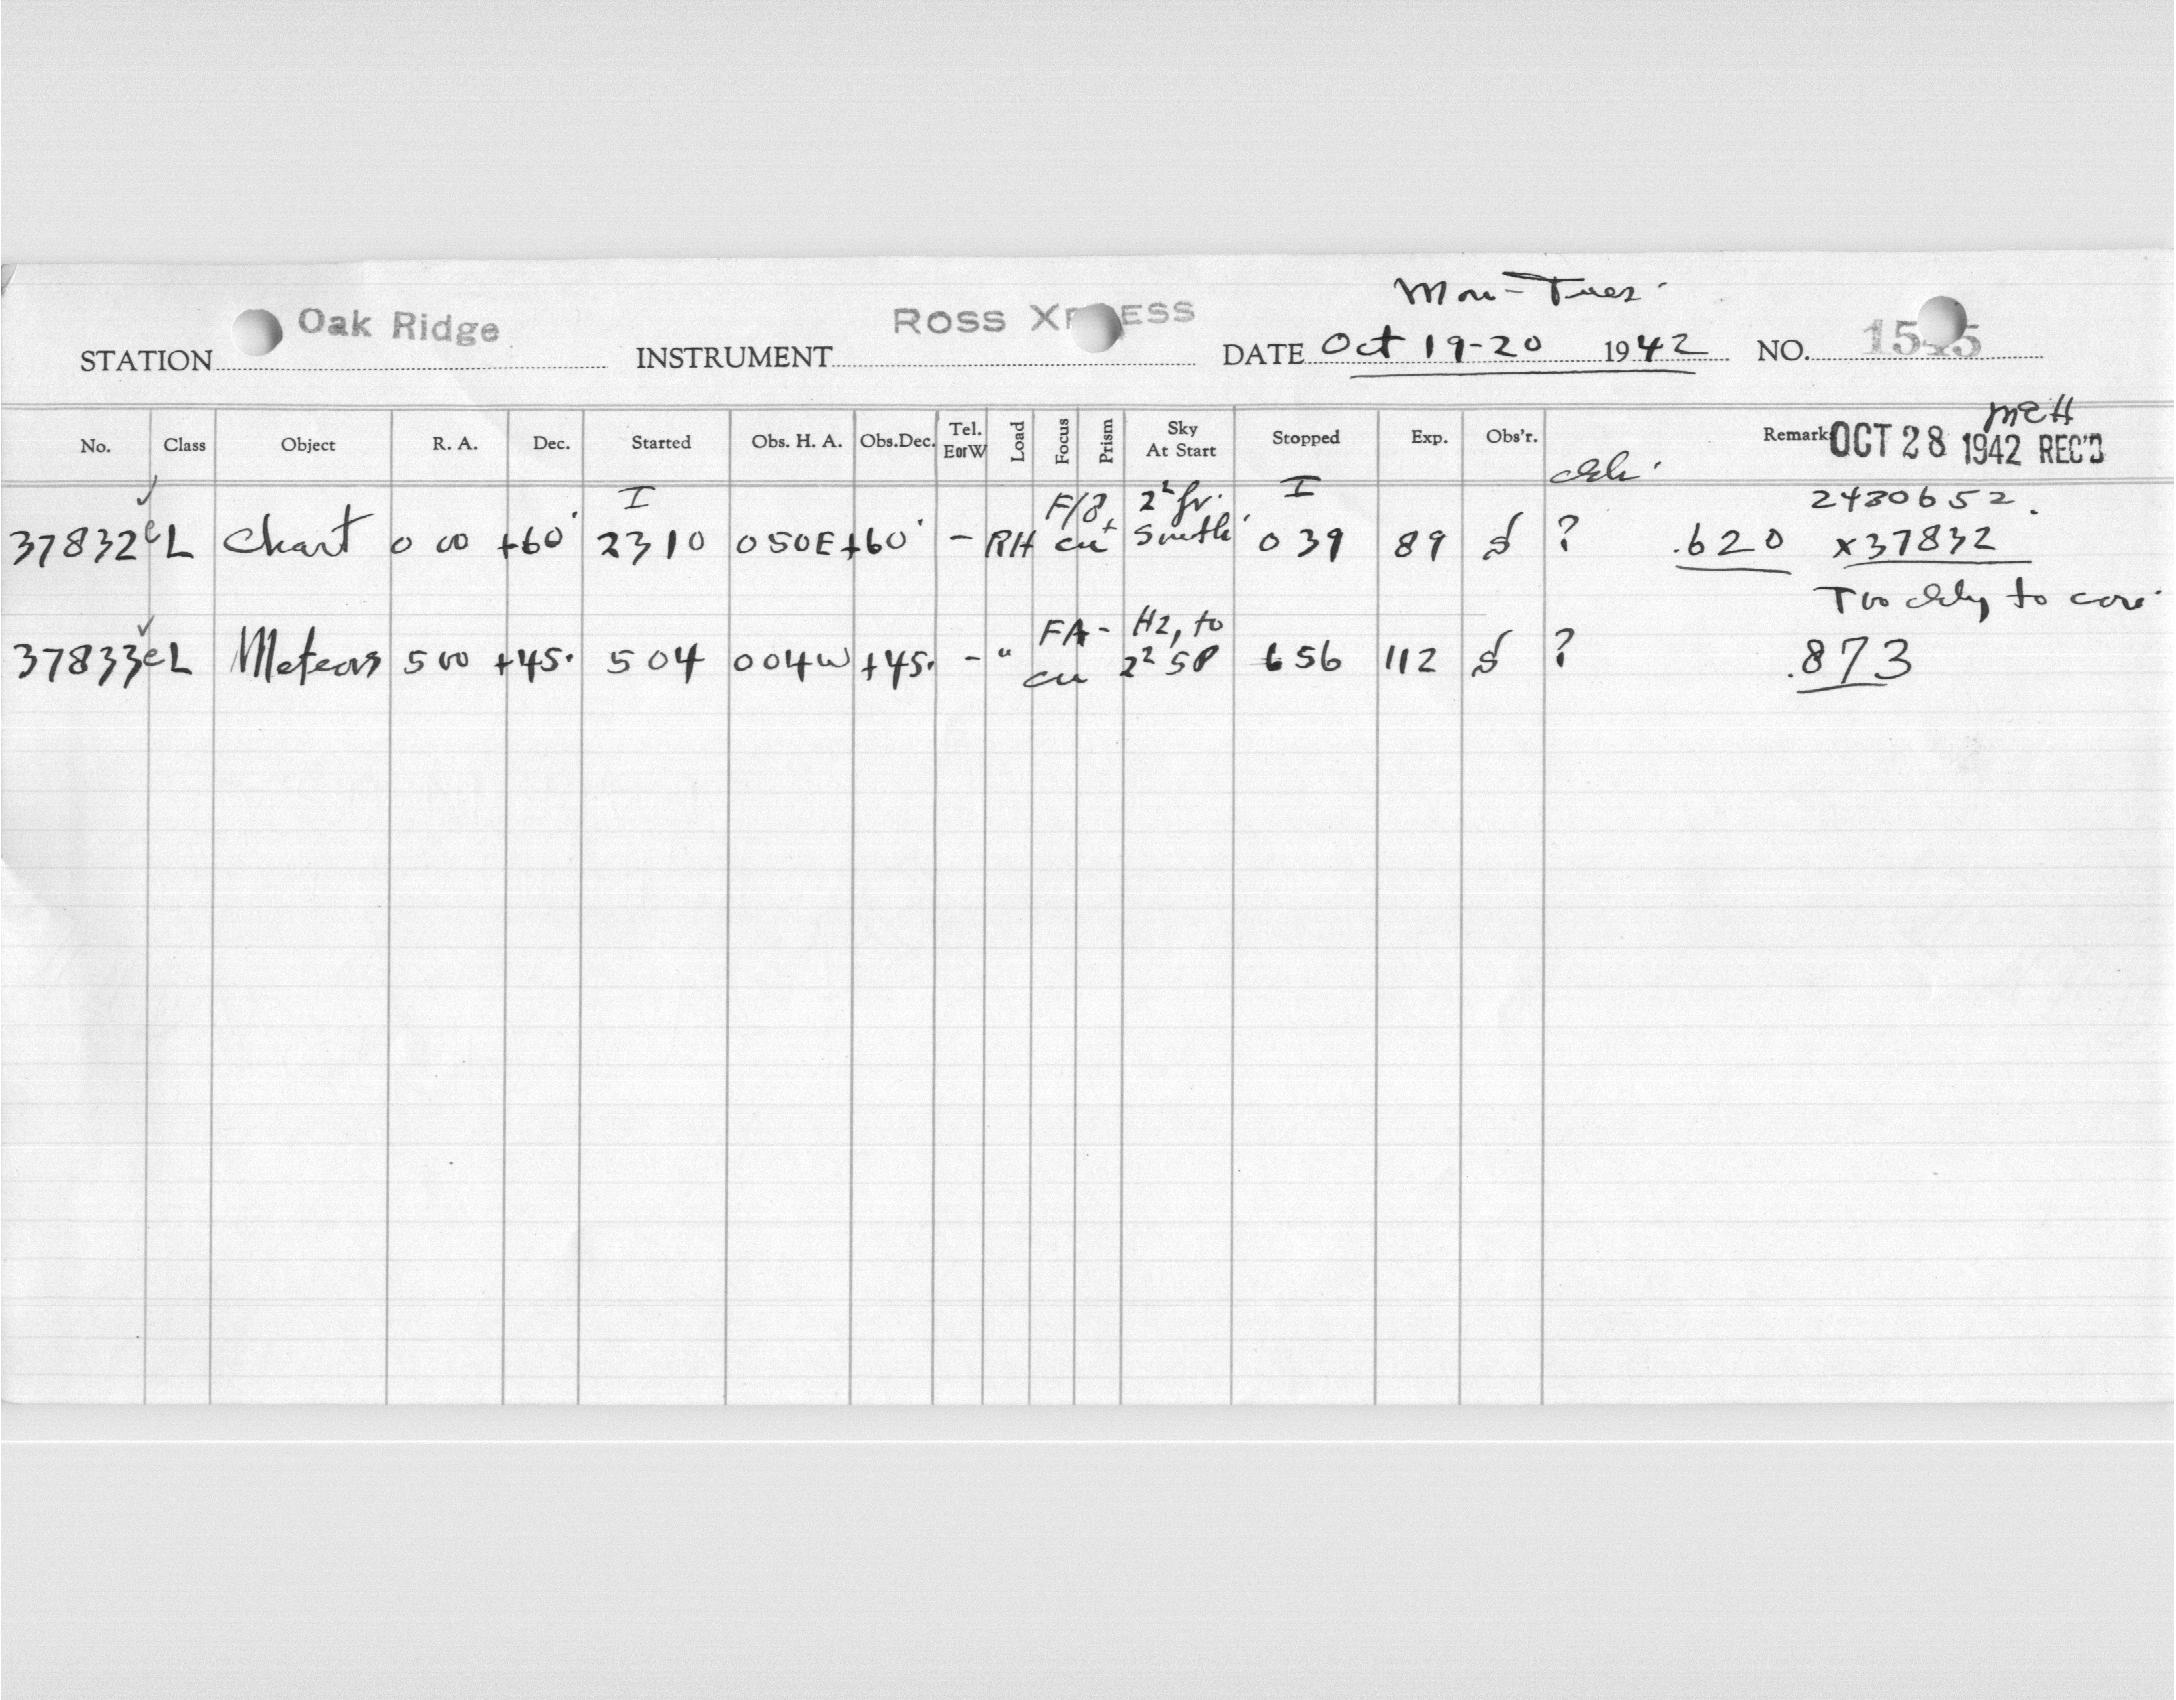 Mon - Tues.
STATION Oak Ridge INSTRUMENT ROSS XPRESS DATE Oct 19-20 1942 NO. 15
No. Class Object R. A. Dec. Started Obs. H. A. Obs.Dec. Tel. EorW Load Focus Prism Sky At Start Stopped Exp. Obs'r. Remark OCT 28 1942 REC'D
I F/8 I 2430652.
37832 e L Chart 0 00 +60° 2310 050E +60° - RH cu South 039 89 S ? .620 x37832
Too to
37833 e L Meteors 5 00 +45. 504 004W +45. - " FA - cu Hz, to 2² SP 656 112 S ? .873